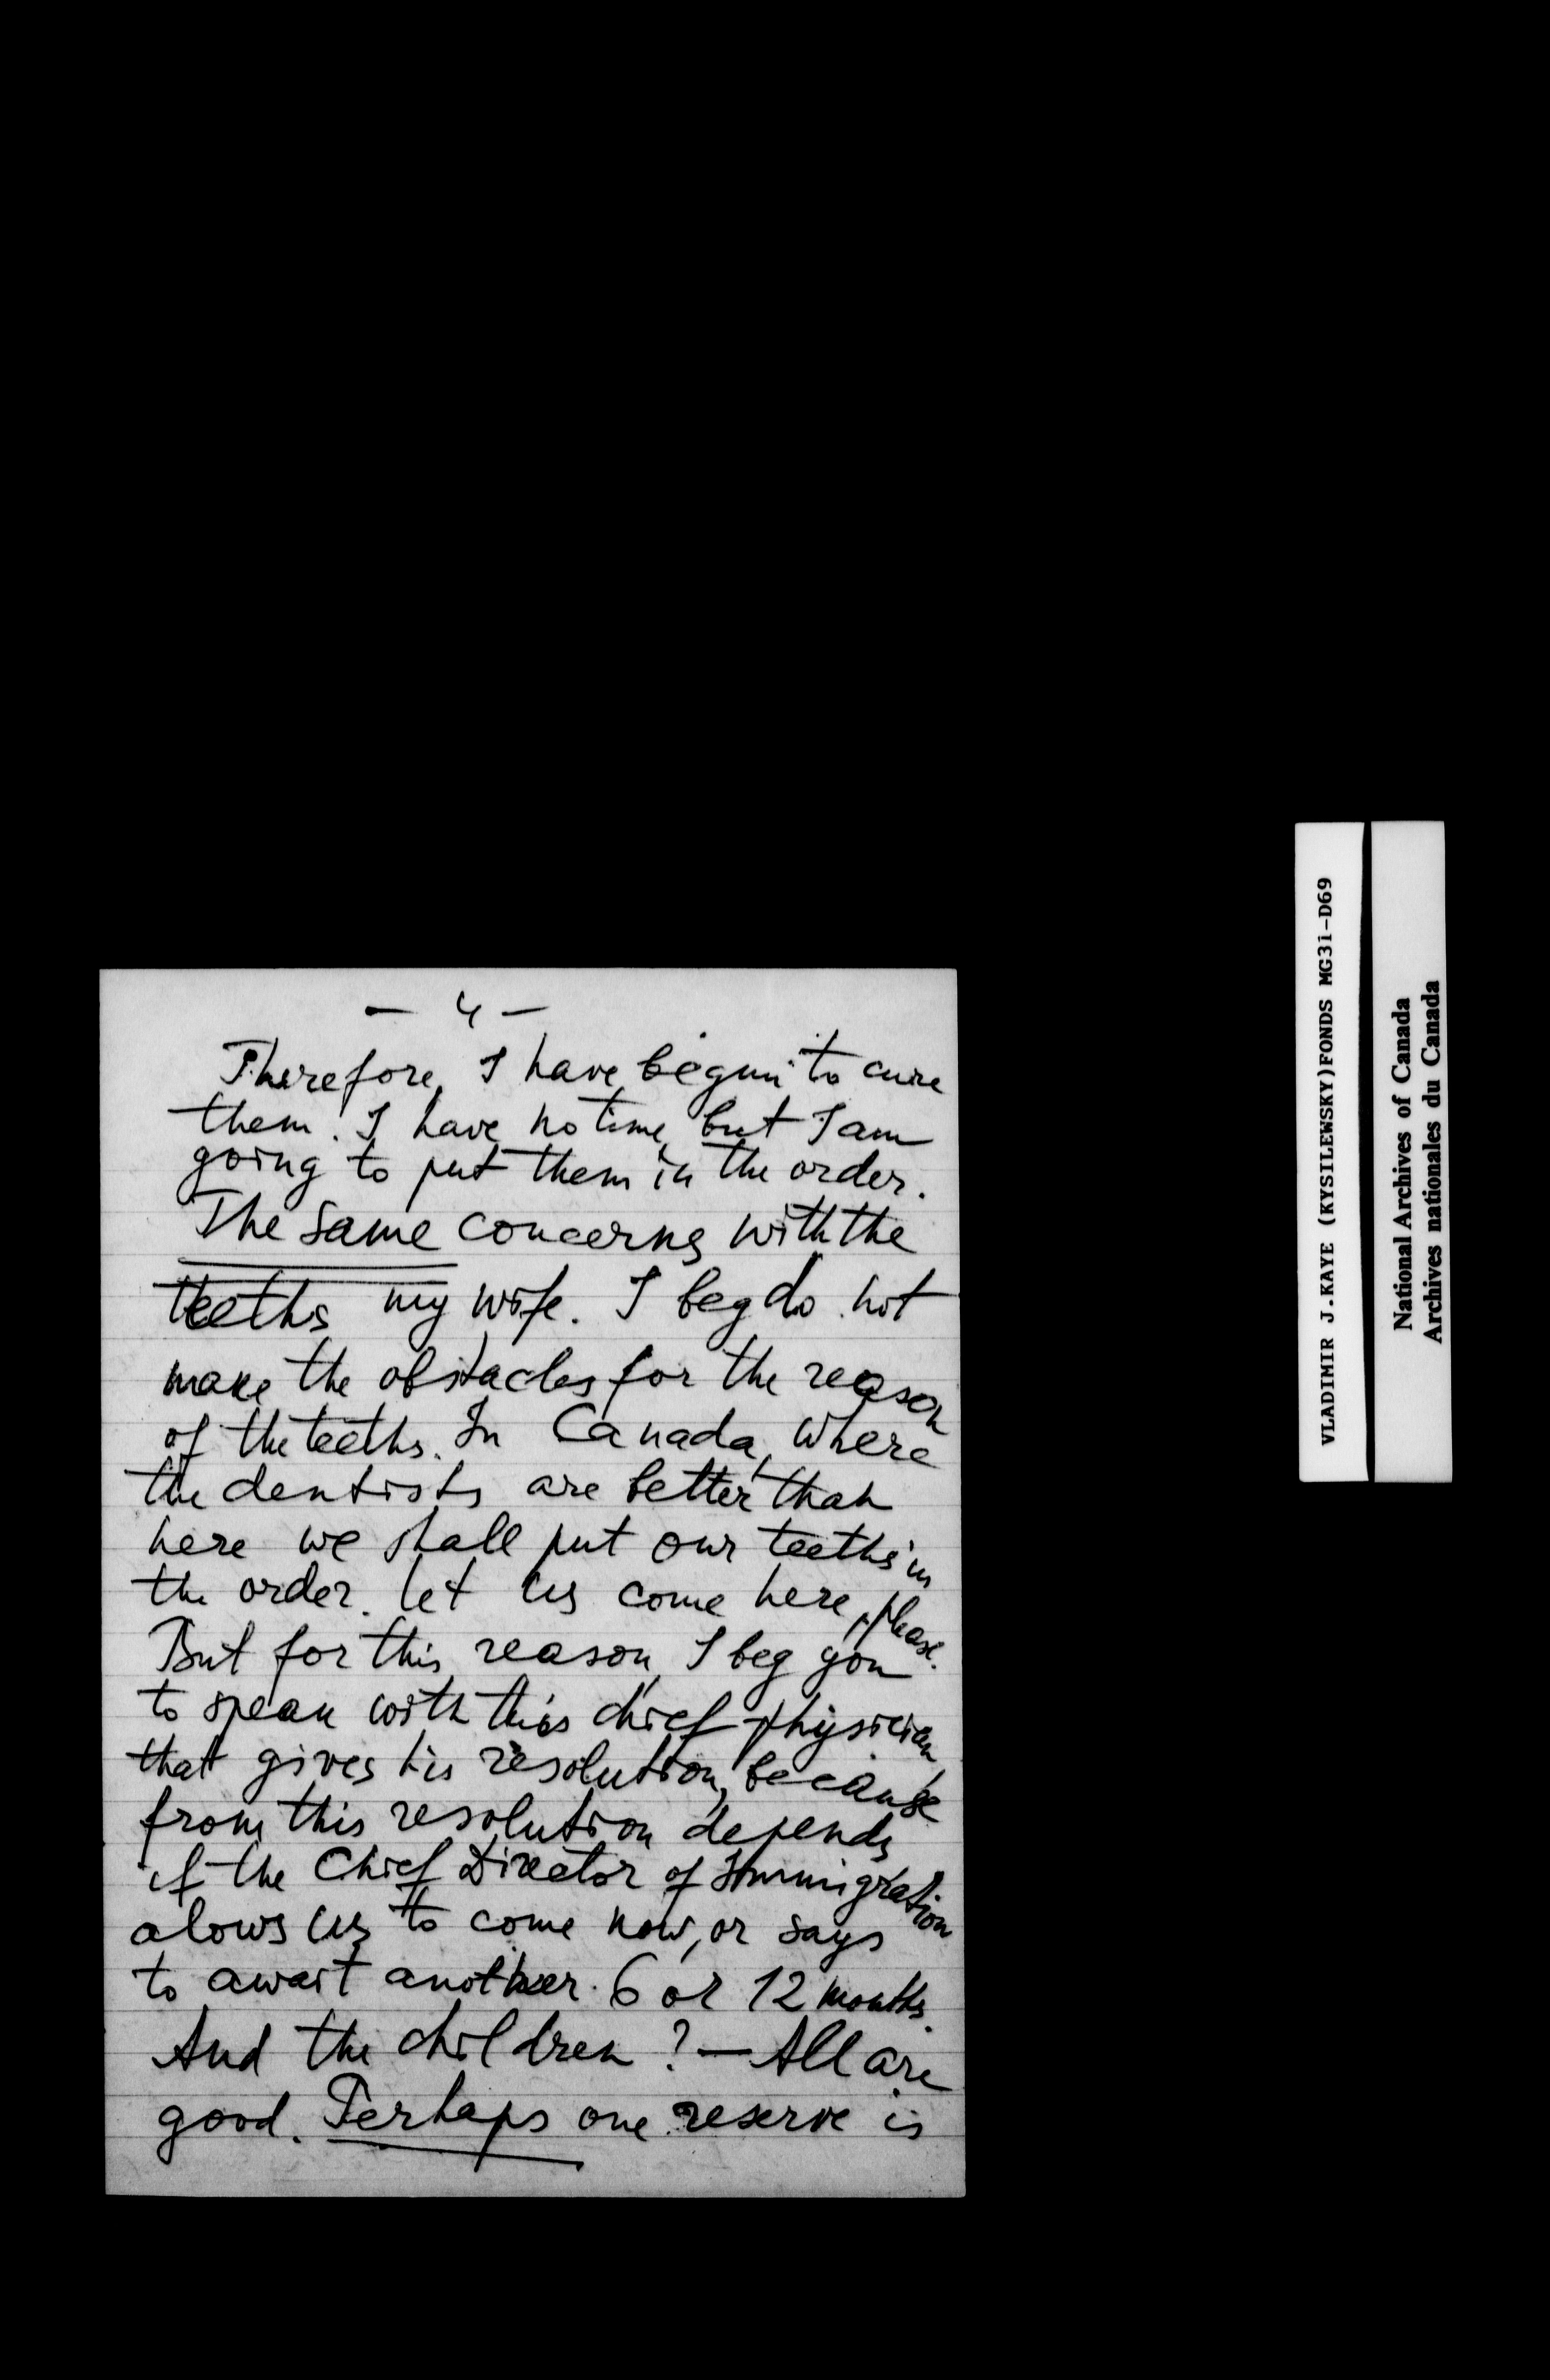 — 4 —
Therefore, I have begun to cure
them. I have no time, but I am
going to put them in the order.
The same concerns with the
teeths my wife. I beg do not
make the obstacles for the reason
of the teeths. In Canada, where
the dentists are better than
here we shall put our teeths in
the order. Let us come here, please.
But for this reason, I beg you
to speak with this chief-physician,
that gives his resolution, because
from this resolution depends
if the Chief Director of Immigration
alows us to come now, or says
to await another 6 or 12 months.
And the children? — All are
good. Perhaps one reserve is
VLADIMIR J.KAYE (KYSILEWSKY)FONDS MG31-D69
National Archives of Canada
Archives nationales du Canada